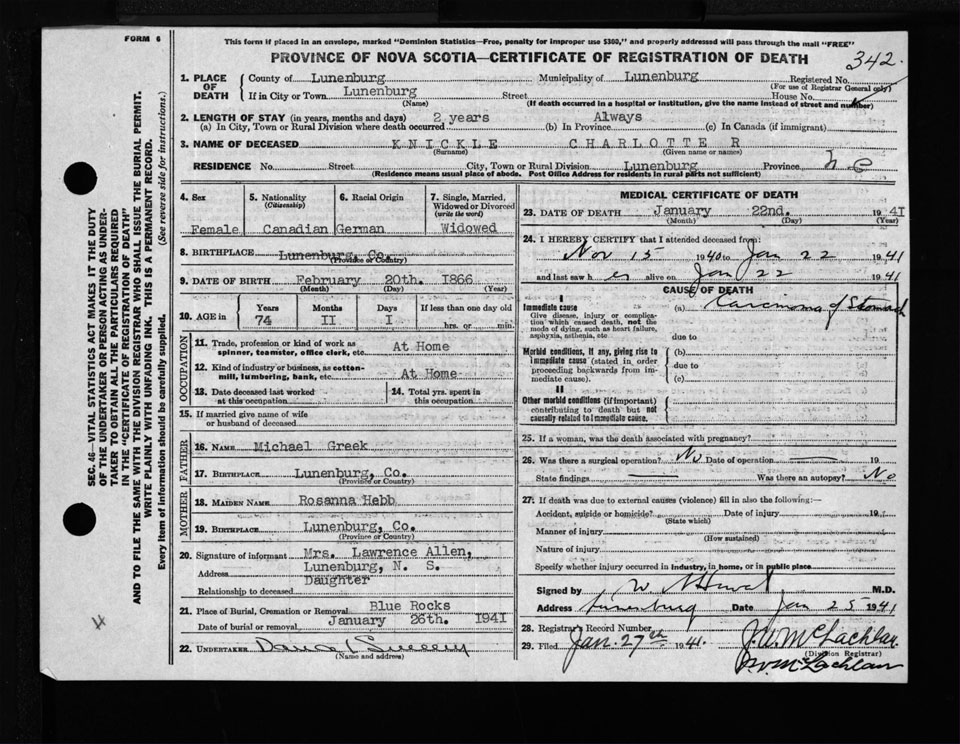 FORM 6
This form if placed in an envelope, marked "Dominion Statistics—Free, penalty for improper use $300," and properly addressed will pass through the mail "FREE"
PROVINCE OF NOVA SCOTIA—CERTIFICATE OF REGISTRATION OF DEATH
342.
1. PLACE OF DEATH County of Lunenburg Municipality of Lunenburg Registered No.
(For use of Registrar General only)
If in City or Town Lunenburg Street House No.
(Name) (If death occurred in a hospital or institution, give the name instead of street and number)
2. LENGTH OF STAY (in years, months and days) 2 years Always
(a) In City, Town or Rural Division where death occurred (b) In Province (c) In Canada (if immigrant)
3. NAME OF DECEASED KNICKLE CHARLOTTE R
(Surname) (Given name or names)
RESIDENCE No. Street City, Town or Rural Division Lunenburg Province N S
(Residence means usual place of abode. Post Office Address for residents in rural parts not sufficient)
4. Sex Female
5. Nationality (Citizenship) Canadian
6. Racial Origin German
7. Single, Married, Widowed or Divorced (write the word) Widowed
8. BIRTHPLACE Lunenburg, Co.
(Province or Country)
9. DATE OF BIRTH February 20th. 1866
(Month) (Day) (Year)
10. AGE in Years Months Days If less than one day old
74 II I hrs. or min.
OCCUPATION
11. Trade, profession or kind of work as spinner, teamster, office clerk, etc. At Home
12. Kind of industry or business, as cotton-mill, lumbering, bank, etc. At Home
13. Date deceased last worked at this occupation
14. Total yrs. spent in this occupation
15. If married give name of wife or husband of deceased
FATHER
16. NAME Michael Greek
17. BIRTHPLACE Lunenburg, Co.
(Province or Country)
MOTHER
18. MAIDEN NAME Rosanna Hebb
19. BIRTHPLACE Lunenburg, Co.
(Province or Country)
20. Signature of informant Mrs. Lawrence Allen,
Address Lunenburg, N. S.
Relationship to deceased Daughter
21. Place of Burial, Cremation or Removal Blue Rocks
Date of burial or removal January 26th. 194I
22. UNDERTAKER
(Name and address)
MEDICAL CERTIFICATE OF DEATH
23. DATE OF DEATH January 22nd. 1941
(Month) (Day) (Year)
24. I HEREBY CERTIFY that I attended deceased from:
Nov 15 1940 to Jan 22 1941
and last saw her alive on Jan 22 1941
CAUSE OF DEATH
I
Immediate cause (a) Carcinoma of Stomach
Give disease, injury or complication which caused death, not the mode of dying, such as heart failure, asphyxia, asthenia, etc
due to
Morbid conditions, if any, giving rise to immediate cause (stated in order proceeding backwards from immediate cause).
(b)
due to
(c)
II
Other morbid conditions (if important) contributing to death but not causally related to immediate cause.
25. If a woman, was the death associated with pregnancy?
26. Was there a surgical operation? No Date of operation 19
State findings Was there an autopsy? No
27. If death was due to external causes (violence) fill in also the following:—
Accident, suicide or homicide? Date of injury 19
(State which)
Manner of injury
(How sustained)
Nature of injury
Specify whether injury occurred in industry, in home, or in public place
Signed by M.D.
Address Lunenburg Date Jan 25 1941
28. Registrar's Record Number
29. Filed Jan. 27th 1941. J. W. McLachlan
(Division Registrar)
J. W. McLachlan
SEC. 46—VITAL STATISTICS ACT MAKES IT THE DUTY
OF THE UNDERTAKER OR PERSON ACTING AS UNDER-
TAKER TO OBTAIN ALL THE PARTICULARS REQUIRED
IN THE "CERTIFICATE OF REGISTRATION OF DEATH"
AND TO FILE THE SAME WITH THE DIVISION REGISTRAR WHO SHALL ISSUE THE BURIAL PERMIT.
WRITE PLAINLY WITH UNFADING INK. THIS IS A PERMANENT RECORD.
Every item of information should be carefully supplied. (See reverse side for instructions.)